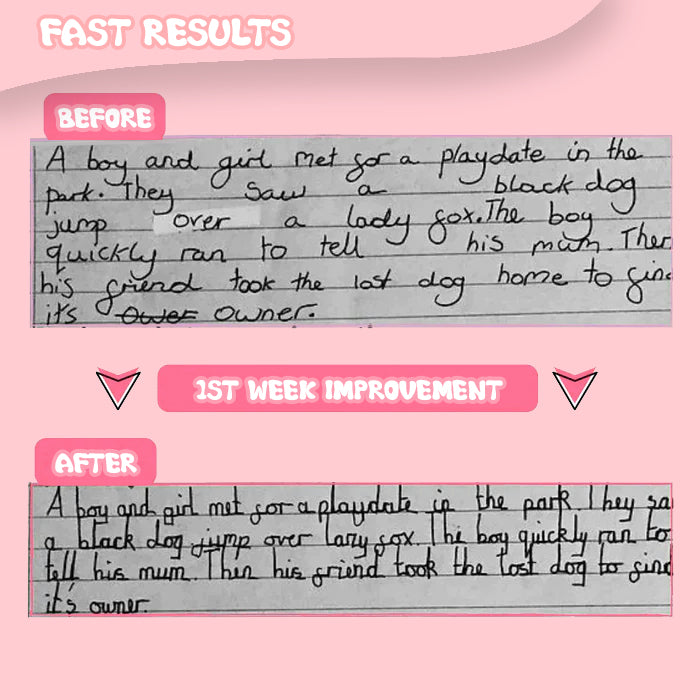 FAST RESULTS
BEFORE
A boy and girl met for a playdate in the
park. They saw a black dog
jump over a lady fox. The boy
quickly ran to tell his mum. Then
his friend took the lost dog home to find
it's Ower owner.
1ST WEEK IMPROVEMENT
AFTER
A boy and girl met for a playdate in the park. They sa
a black dog jump over lazy fox. The boy quickly ran to
tell his mum. Then his friend took the lost dog to find
it's owner.